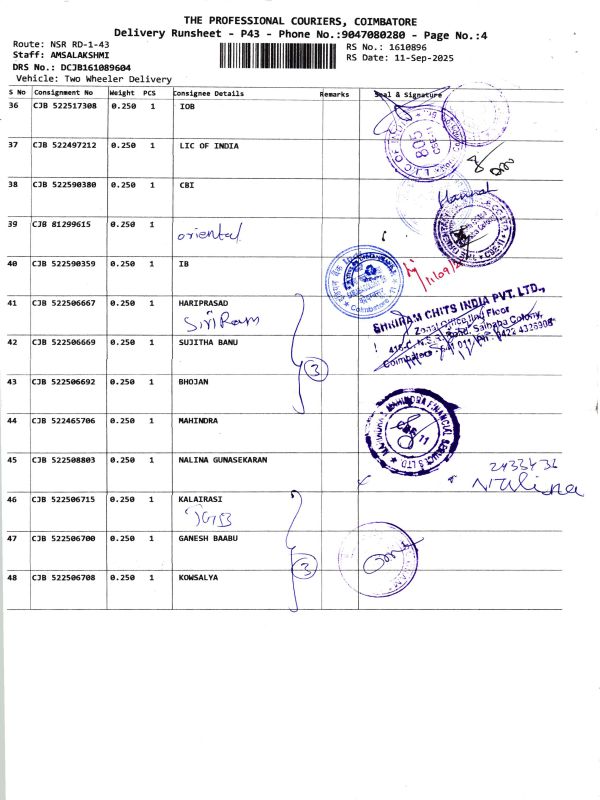 THE PROFESSIONAL COURIERS, COIMBATORE
Delivery Runsheet - P43 - Phone No.:9047080280 - Page No.:4
Route: NSR RD-1-43
Staff: AMSALAKSHMI
DRS No.: DCJB161089604
Vehicle: Two Wheeler Delivery
RS No.: 1610896
RS Date: 11-Sep-2025
S No Consignment No Weight PCS Consignee Details Remarks Seal & Signature
36 CJB 522517308 0.250 1 IOB
37 CJB 522497212 0.250 1 LIC OF INDIA
38 CJB 522590380 0.250 1 CBI
39 CJB 81299615 0.250 1
oriental
40 CJB 522590359 0.250 1 IB
11/09/
41 CJB 522506667 0.250 1 HARIPRASAD
Siri Ram
SHRIRAM CHITS INDIA PVT. LTD.,
Zonal Office IInd Floor
Saibaba Colony,
Coimbatore - 641 011. PH : 0422 4326908
42 CJB 522506669 0.250 1 SUJITHA BANU
3
43 CJB 522506692 0.250 1 BHOJAN
44 CJB 522465706 0.250 1 MAHINDRA
MAHINDRA & MAHINDRA FINANCIAL SERVICES LTD
CBE 11
45 CJB 522508803 0.250 1 NALINA GUNASEKARAN
Nalina
46 CJB 522506715 0.250 1 KALAIRASI
47 CJB 522506700 0.250 1 GANESH BAABU
3
48 CJB 522506708 0.250 1 KOWSALYA